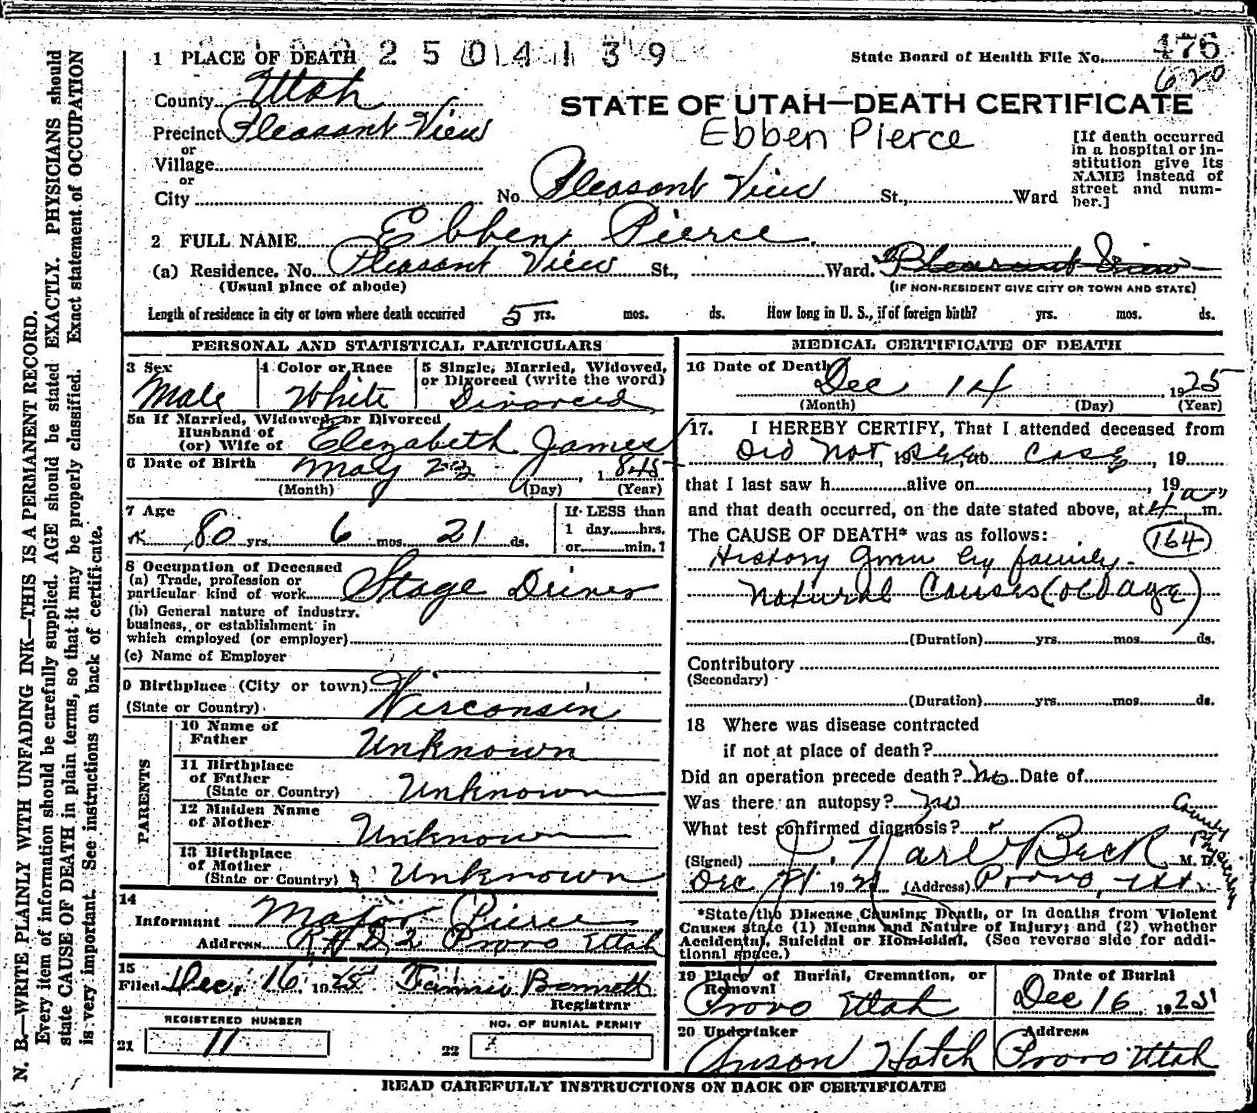 2 5 0 4 1 3 9
1 PLACE OF DEATH
State Board of Health File No. 476
620
County Utah
STATE OF UTAH—DEATH CERTIFICATE
Precinct Pleasant View
Ebben Pierce
or
Village
or
City
No. Pleasant View St., Ward
[If death occurred
in a hospital or in-
stitution give its
NAME instead of
street and num-
ber.]
2 FULL NAME Ebben Pierce
(a) Residence. No. Pleasant View St., Ward. Pleasant View
(Usual place of abode)
(IF NON-RESIDENT GIVE CITY OR TOWN AND STATE)
Length of residence in city or town where death occurred 5 yrs. mos. ds. How long in U. S., if of foreign birth? yrs. mos. ds.
PERSONAL AND STATISTICAL PARTICULARS
3 Sex
Male
4 Color or Race
White
5 Single, Married, Widowed,
or Divorced (write the word)
Divorced
5a If Married, Widowed, or Divorced
Husband of
(or) Wife of Elizabeth James
6 Date of Birth May 23, 1845
(Month) (Day) (Year)
7 Age
80 yrs. 6 mos. 21 ds.
If LESS than
1 day....hrs.
or....min.?
8 Occupation of Deceased
(a) Trade, profession or
particular kind of work Stage Driver
(b) General nature of industry.
business, or establishment in
which employed (or employer)
(c) Name of Employer
9 Birthplace (City or town)
(State or Country) Wisconsin
PARENTS
10 Name of
Father Unknown
11 Birthplace
of Father
(State or Country) Unknown
12 Maiden Name
of Mother Unknown
13 Birthplace
of Mother
(State or Country) Unknown
14
Informant Major Pierce
Address R F D 2 Provo Utah
15
Filed Dec. 16 1925 Fannie Bennett
Registrar
REGISTERED NUMBER
21 11
NO. OF BURIAL PERMIT
22
MEDICAL CERTIFICATE OF DEATH
16 Date of Death Dec 14 1925
(Month) (Day) (Year)
17. I HEREBY CERTIFY, That I attended deceased from
Did Not See Case, 19
that I last saw h alive on , 19
and that death occurred, on the date stated above, at 4 a m.
The CAUSE OF DEATH* was as follows: 164
History given by family.
Natural Causes (old age)
(Duration) yrs. mos. ds.
Contributory
(Secondary)
(Duration) yrs. mos. ds.
18 Where was disease contracted
if not at place of death?
Did an operation precede death? No Date of
Was there an autopsy? No
What test confirmed diagnosis?
(Signed) J. Karl Beck M. D.
County Physician
Dec 21 19 (Address) Provo, Ut.
*State the Disease Causing Death, or in deaths from Violent
Causes state (1) Means and Nature of Injury; and (2) whether
Accidental, Suicidal or Homicidal. (See reverse side for addi-
tional space.)
19 Place of Burial, Cremation, or
Removal
Provo Utah
Date of Burial
Dec 16 1925
20 Undertaker
Anson Hatch
Address
Provo Utah
READ CAREFULLY INSTRUCTIONS ON BACK OF CERTIFICATE
N. B.—WRITE PLAINLY WITH UNFADING INK—THIS IS A PERMANENT RECORD.
Every item of information should be carefully supplied. AGE should be stated EXACTLY. PHYSICIANS should
state CAUSE OF DEATH in plain terms, so that it may be properly classified. Exact statement of OCCUPATION
is very important. See instructions on back of certificate.